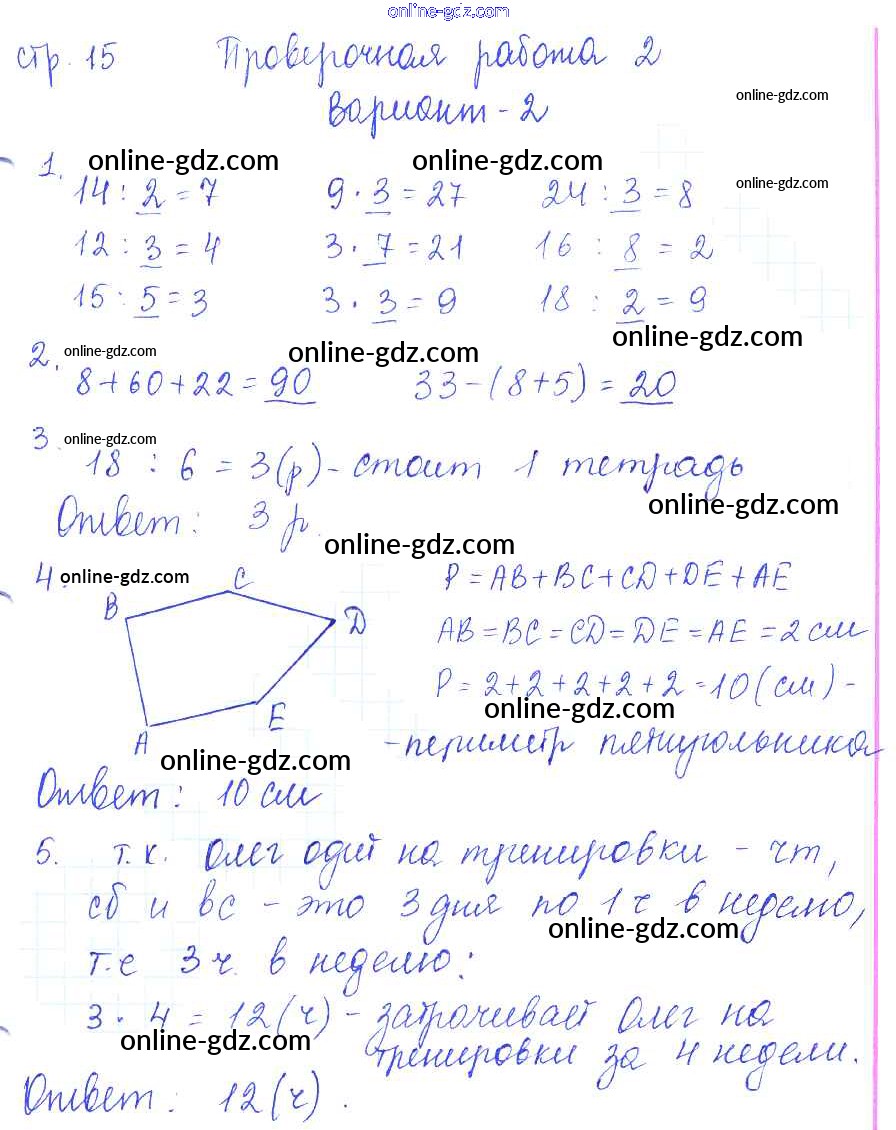 online-gdz.com
стр. 15 Проверочная работа 2
Вариант - 2
online-gdz.com
online-gdz.com online-gdz.com
online-gdz.com
1. 14 : 2 = 7 9 · 3 = 27 24 : 3 = 8
12 : 3 = 4 3 · 7 = 21 16 : 8 = 2
15 : 5 = 3 3 · 3 = 9 18 : 2 = 9
online-gdz.com
2. online-gdz.com online-gdz.com
8 + 60 + 22 = 90 33 - (8 + 5) = 20
3. online-gdz.com
18 : 6 = 3 (р) - стоит 1 тетрадь
online-gdz.com
Ответ: 3 р.
online-gdz.com
4. online-gdz.com
C
B
D
E
A
P = AB + BC + CD + DE + AE
AB = BC = CD = DE = AE = 2 см
P = 2 + 2 + 2 + 2 + 2 = 10 (см) -
online-gdz.com
- периметр пятиугольника
online-gdz.com
Ответ: 10 см
5. т.к. Олег одит на тренировки - чт,
сб и вс - это 3 дня по 1 ч в неделю,
online-gdz.com
т.е 3 ч. в неделю:
3 · 4 = 12 (ч) - затрачивает Олег на
online-gdz.com
тренировки за 4 недели.
Ответ: 12 (ч).